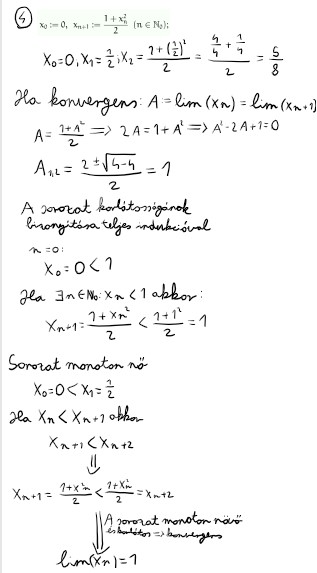 ④ x₀ := 0, xₙ₊₁ := (1+xₙ²)/2 (n ∈ ℕ₀);
X₀=0, X₁=1/2; X₂ = (1+(1/2)²)/2 = (4/4+1/4)/2 = 5/8
Ha konvergens: A:=lim(Xn)=lim(Xn+1)
A = (1+A²)/2 ⟹ 2A=1+A² ⟹ A²-2A+1=0
A₁,₂ = (2±√(4-4))/2 = 1
A sorozat korlátosságának
bizonyítása teljes indukcióval
n=0:
X₀=0<1
Ha ∃n∈ℕ₀: Xn<1 akkor:
Xn+1 = (1+Xn²)/2 < (1+1²)/2 = 1
Sorozat monoton nő
X₀=0<X₁=1/2
Ha Xn<Xn+1 akkor
Xn+1<Xn+2
⇓
Xn+1 = (1+X²n)/2 < (1+X²n)/2 = Xn+2
⇓ A sorozat monoton növő
és korlátos ⟹ konvergens
lim(Xn)=1